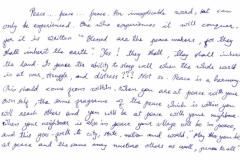 Peace... peace... peace. An inexplicable word, but can
only be experienced. One who experiences it will conquer,
for it is written "Blessed are the peace makers, for they
shall inherit the earth." Yes! they shall, they shall inherit
the land. Is peace the ability to sleep well when the whole world
is at war, struggle, and distress??! Not so. Peace is a harmony
this should come from within. When you are at peace with your
own self, the same programme of the peace which is within you
will reach others and you will be at peace with your neighbour.
When your neighbour is also in peace your village will be in peace,
and this goes to city, state, nation and world. May the
at peace and the same may nurture others as well,